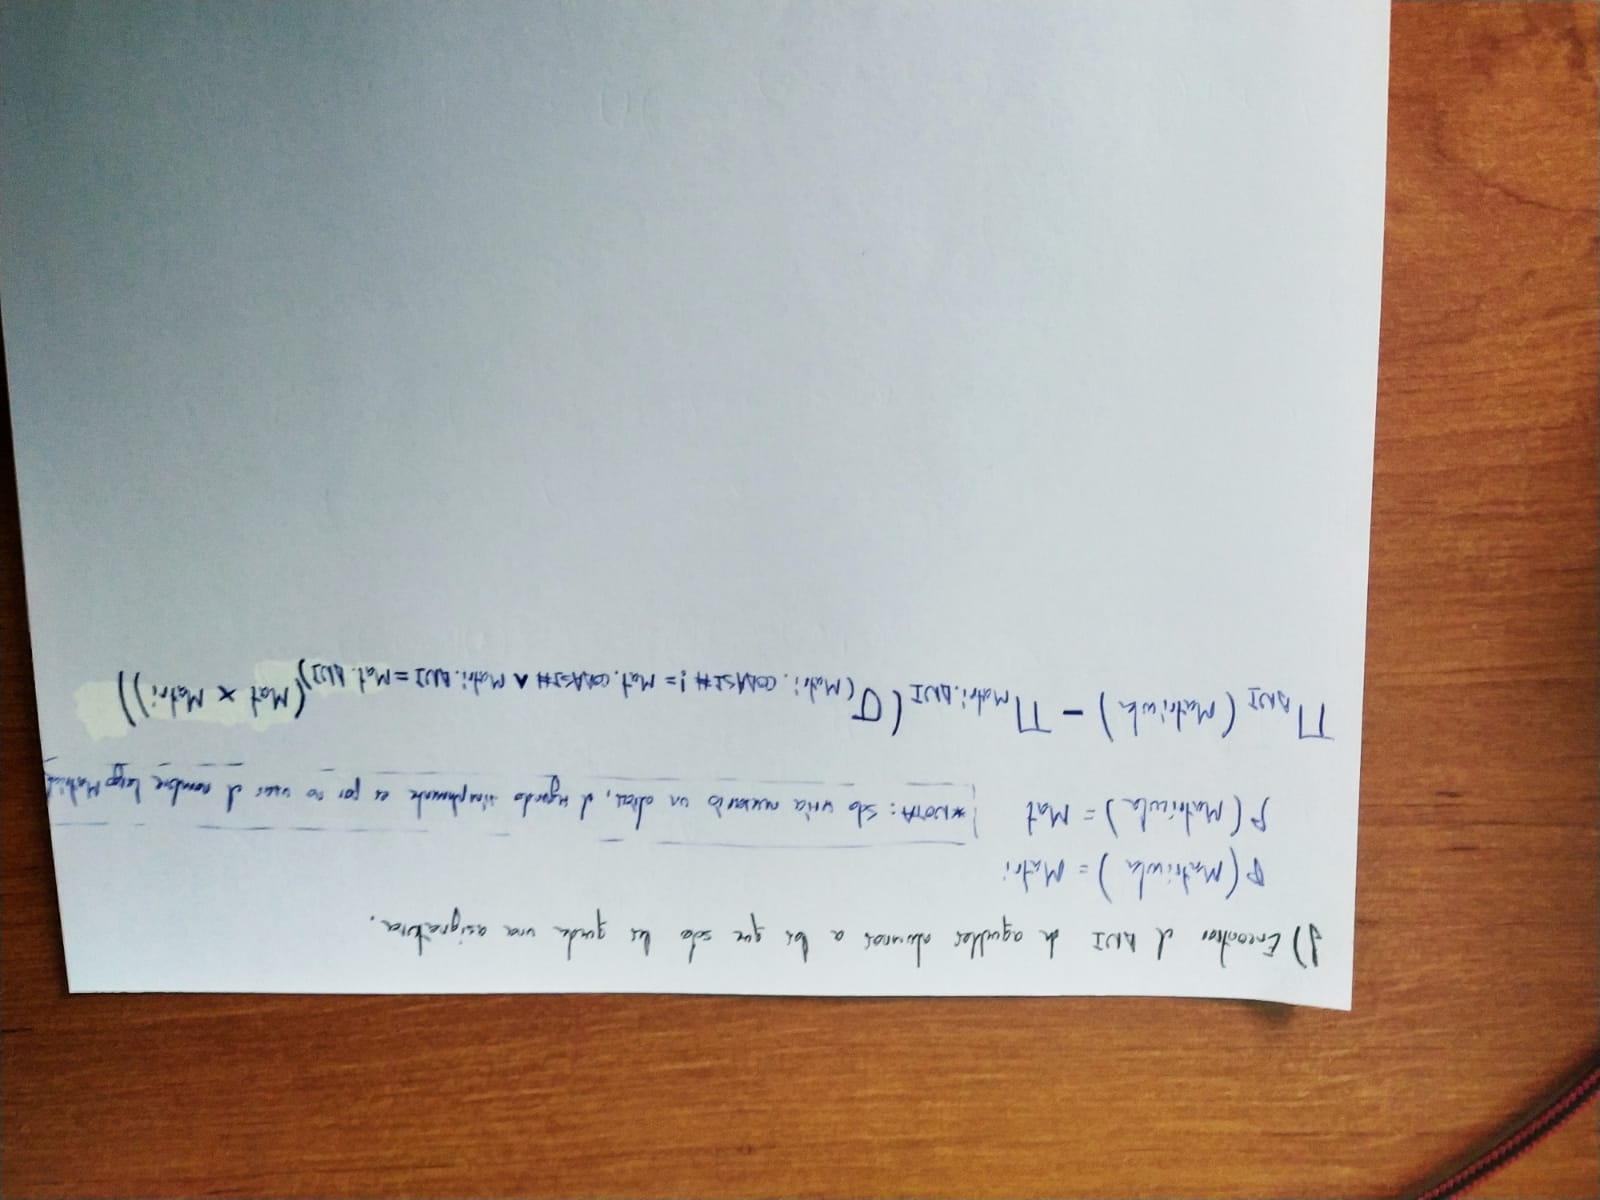 J) Encontrar el DNI de aquellos alumnos a los que solo les queda una asignatura.
ρ(Matricula) = Matri
ρ(Matricula) = Mat *NOTA: Solo sería necesario un alias, el segundo simplemente es por no usar el nombre largo Matricula
Π DNI (Matricula) - Π Matri.DNI (σ(Matri.CODASI# != Mat.CODASI# ∧ Matri.DNI = Mat.DNI) (Mat × Matri))